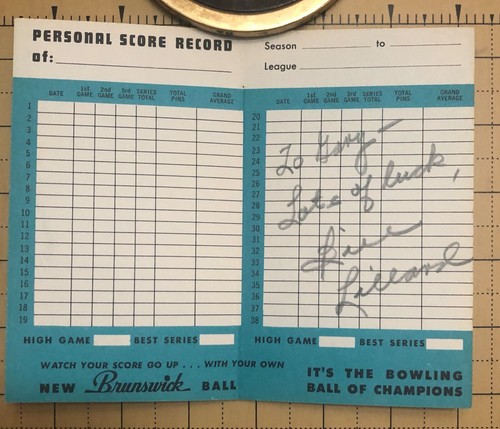 PERSONAL SCORE RECORD
of:
DATE 1st GAME 2nd GAME 3rd GAME SERIES TOTAL TOTAL PINS GRAND AVERAGE
1
2
3
4
5
6
7
8
9
10
11
12
13
14
15
16
17
18
19
HIGH GAME BEST SERIES
WATCH YOUR SCORE GO UP . . . WITH YOUR OWN
NEW Brunswick BALL
Season to
League
DATE 1st GAME 2nd GAME 3rd GAME SERIES TOTAL TOTAL PINS GRAND AVERAGE
20
21
22
23
24
25
26
27
28
29
30
31
32
33
34
35
36
37
38
To Gary —
Lots of luck,
Bill
Lillard
HIGH GAME BEST SERIES
IT'S THE BOWLING
BALL OF CHAMPIONS